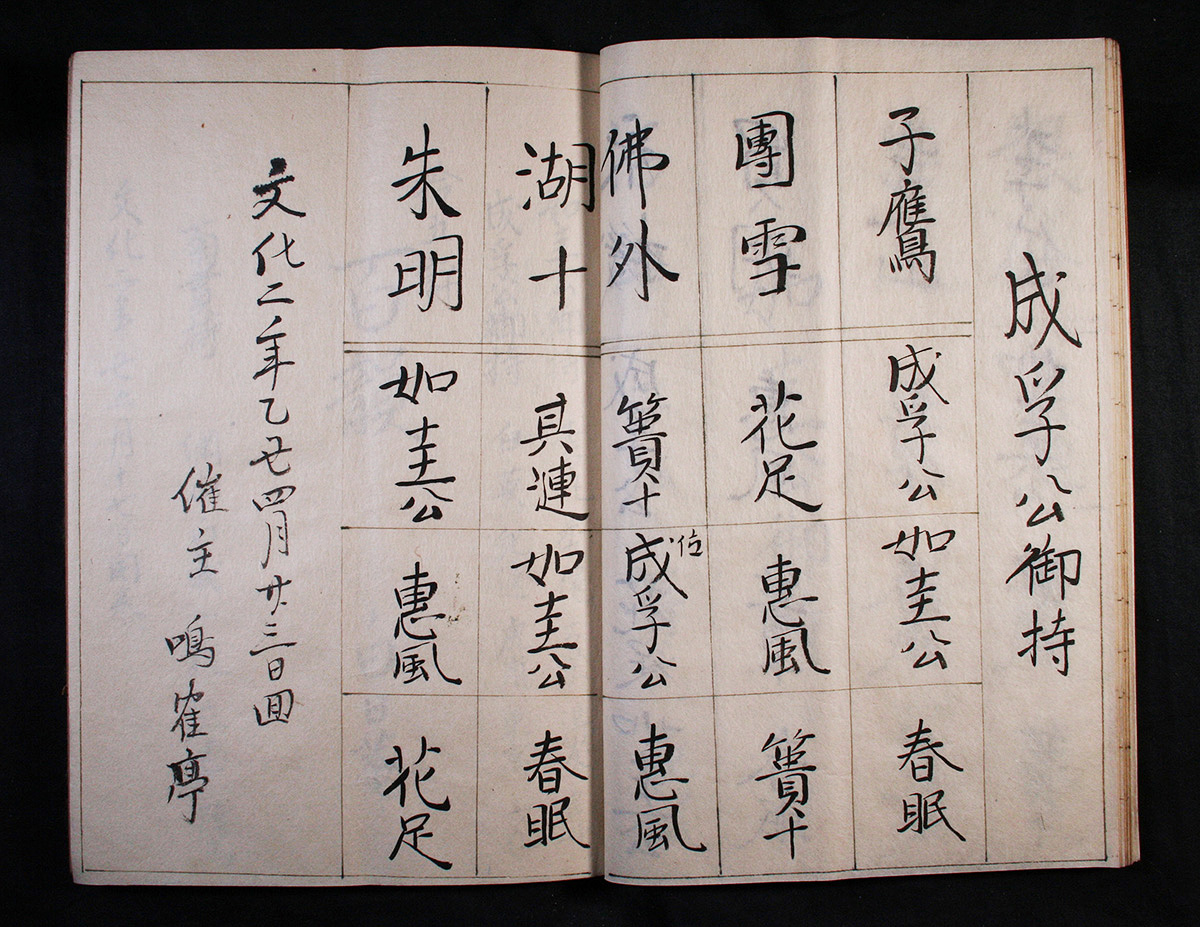 成孚公御持
子鷹
成孚公
如圭公
春眠
團雪
花足
惠風
簣十
佛外
簣十
位
成孚公
惠風
湖十
其連
如圭公
春眠
朱明
如圭公
惠風
花足
文化二年乙丑四月廿三日回
催主 鳴雀亭